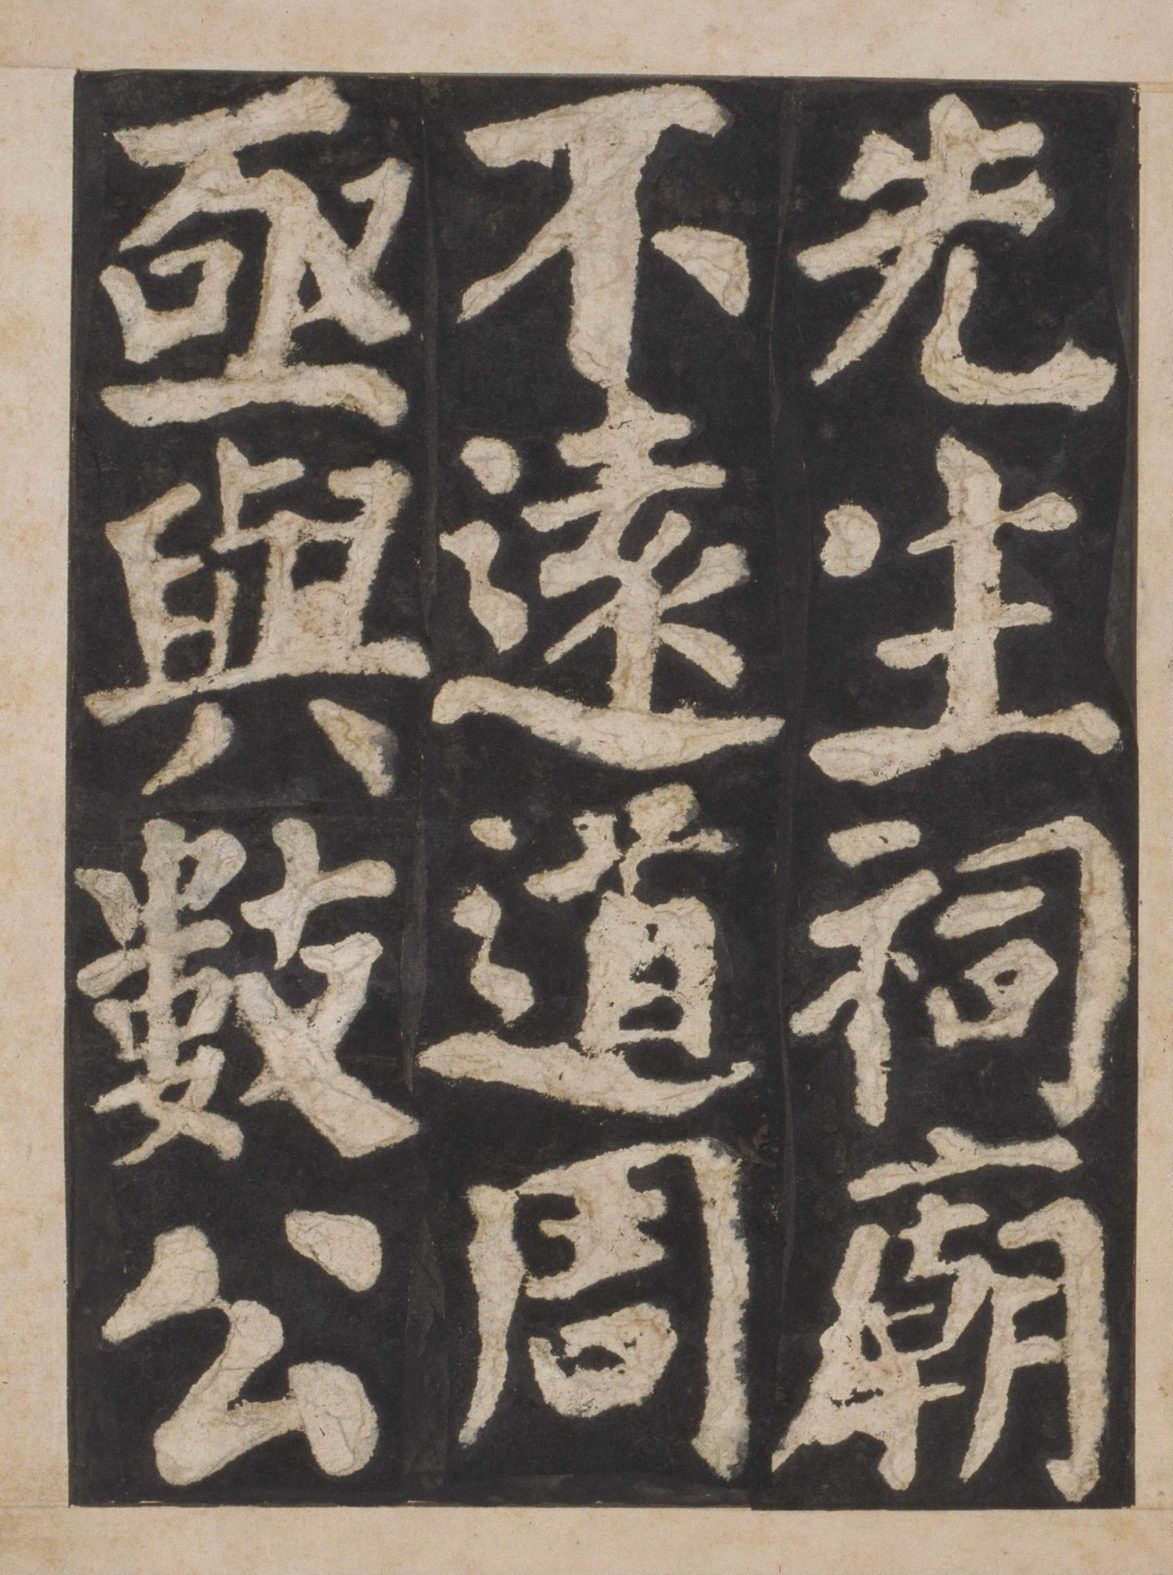 先生祠廟
不遠道周
亟與數公